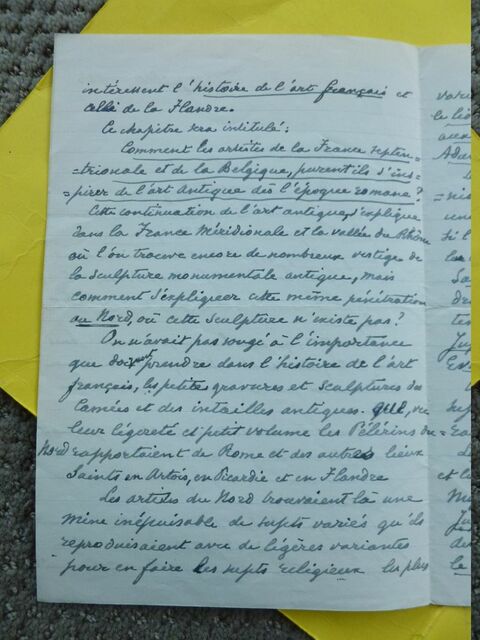 intéressent l'histoire de l'art français et
celle de la Flandre.
Ce chapitre sera intitulé:
Comment les artistes de la France septen=
=trionale et de la Belgique, purent ils s'ins=
=pirer de l'art Antique dès l'époque romane?
Cette continuation de l'art antique, s'explique
dans la France Méridionale et la vallée du Rhône
où l'on trouve encore de nombreux vestige de
la sculpture monumentale antique, mais
comment s'expliquer cette même pénétration
au Nord, où cette sculpture n'existe pas?
On n'avait pas songé à l'importance
que doivent prendre dans l'histoire de l'art
français, les petites gravures et sculptures des
Camées et des intailles antiques. que, vu
leur légèreté et petit volume les Pélerins du
Nord rapportaient de Rome et des autres lieux
Saints en Artois, en Picardie et en Flandre
Les artistes du Nord trouvaient là une
mine inépuisable de sujets variés qu'ils
reproduisaient avec de légères variantes
pour en faire les sujets religieux les plus